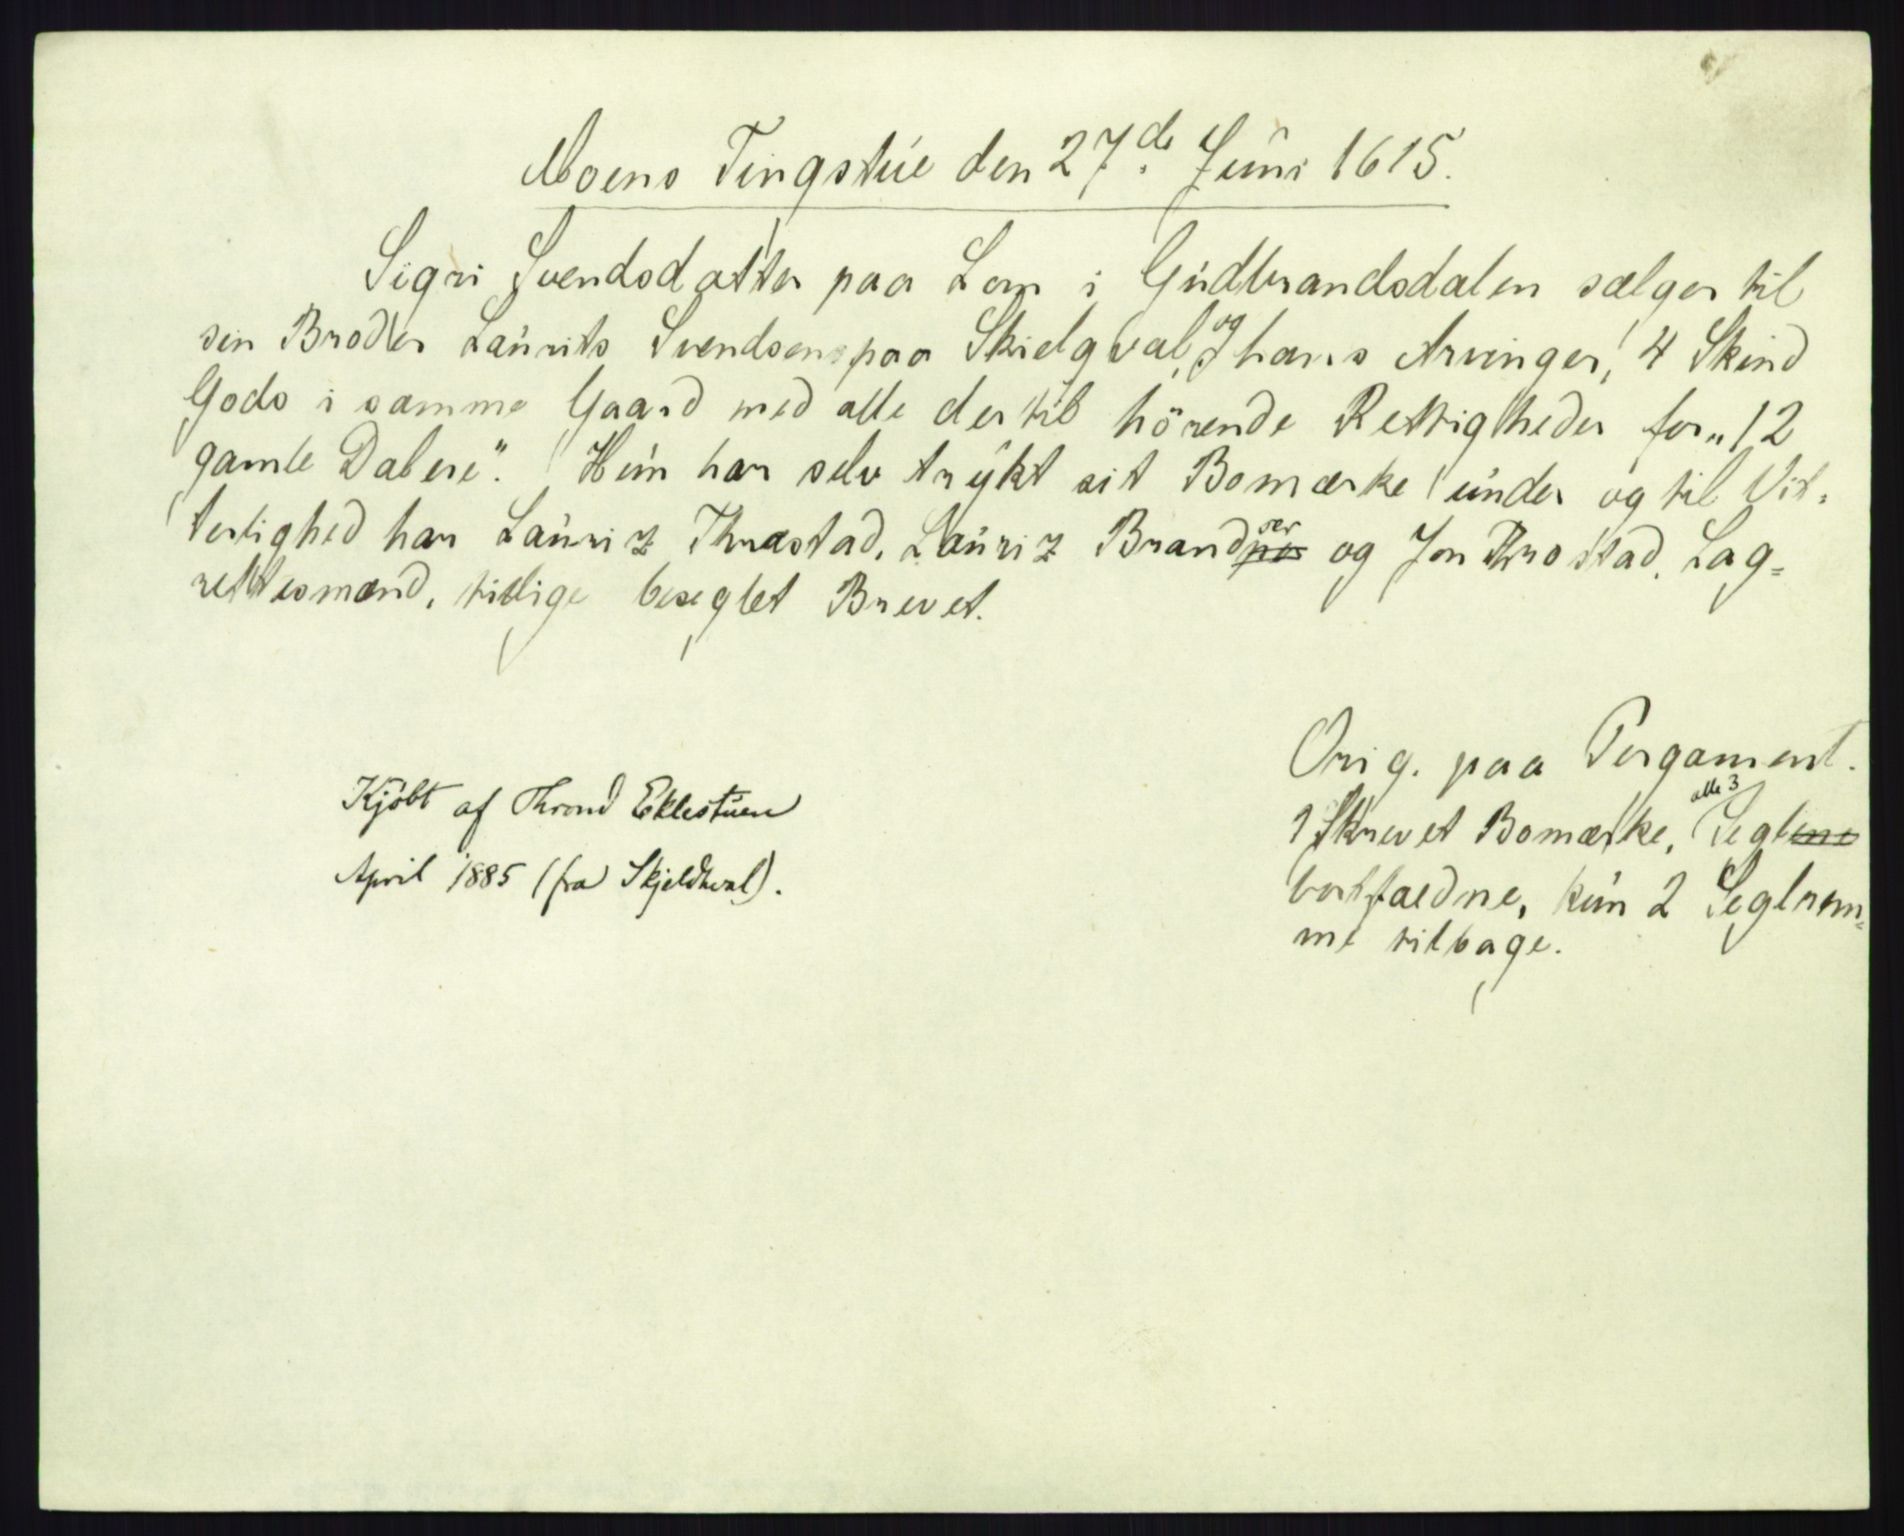 Moens Tingstue den 27de Juni 1615.
Sigri Svendsdatter paa Lom i Gudbrandsdalen sælger til
sin Broder Laurits Svendsen paa Skielqval, og hans Arvinger, 4 Skind
Gods i samme Gaard med alle dertil hörende Rettigheder for „12
gamle Dalere". Hun har selv trykt sit Bomærke under og til Vit-
terlighed har Lauriz Thrastad, Lauriz Brandser og Jon Throstad, Lag-
rettesmænd, tillige beseglet Brevet.
Orig. paa Pergament.
1 Skrevet Bomærke, alle 3 Segl
bortfaldne, kun 2 Seglrem-
me tilbage.
Kjöbt af Thrond Eklestuen
April 1885 (fra Skjeldkval).